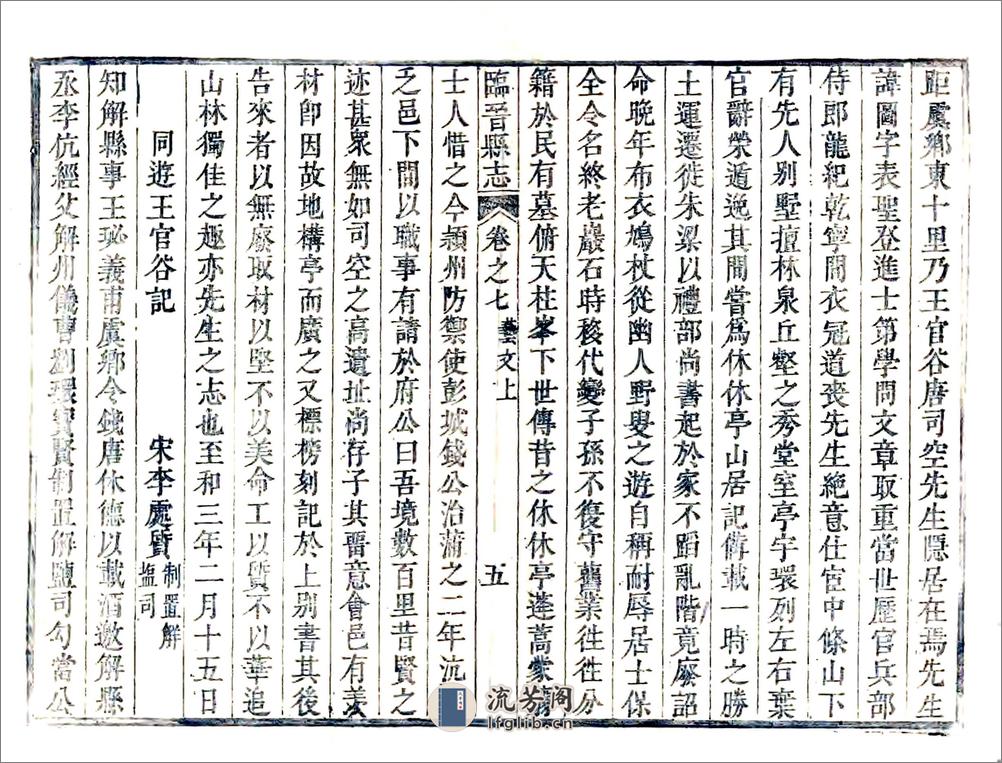 距虞鄉東十里乃王官谷唐司空先生隱居在焉先生
諱圖字表聖登進士第學問文章取重當世歷官兵部
侍郎龍紀乾寧間衣冠道喪先生絶意仕宦中條山下
有先人别墅擅林泉丘壑之秀堂室亭宇環列左右棄
官辭榮遁逸其間嘗爲休休亭山居記備載一時之勝
土運遷徙朱梁以禮部尚書起於家不蹈亂階竟廢詔
命晚年布衣鳩杖從幽人野叟之遊自稱耐辱居士保
全令名終老巖石時移代變子孫不復守舊業徃徃分
籍於民有墓俯天柱峯下世傳昔之休休亭蓬蒿蒙翳
臨晉縣志 卷之七 藝文上 五
士人惜之今潁州防禦使彭城錢公治蒲之二年沆
乏邑下間以職事有請於府公曰吾境數百里昔賢之
迹甚衆無如司空之高遺址尚存子其畱意會邑有羡
材卽因故地構亭而廣之又標榜刻記於上别書其後
告來者以無廢取材以堅不以美命工以質不以華追
山林獨佳之趣亦先生之志也至和三年二月十五日
同遊王官谷記 宋李處質 制置解塩司
知解縣事王珌義甫虞鄉令錢唐休德以載酒邀解縣
丞李伉經父解州儀曹劉環寶賢制置解鹽司勾當公
流芳阁
lfglib.cn